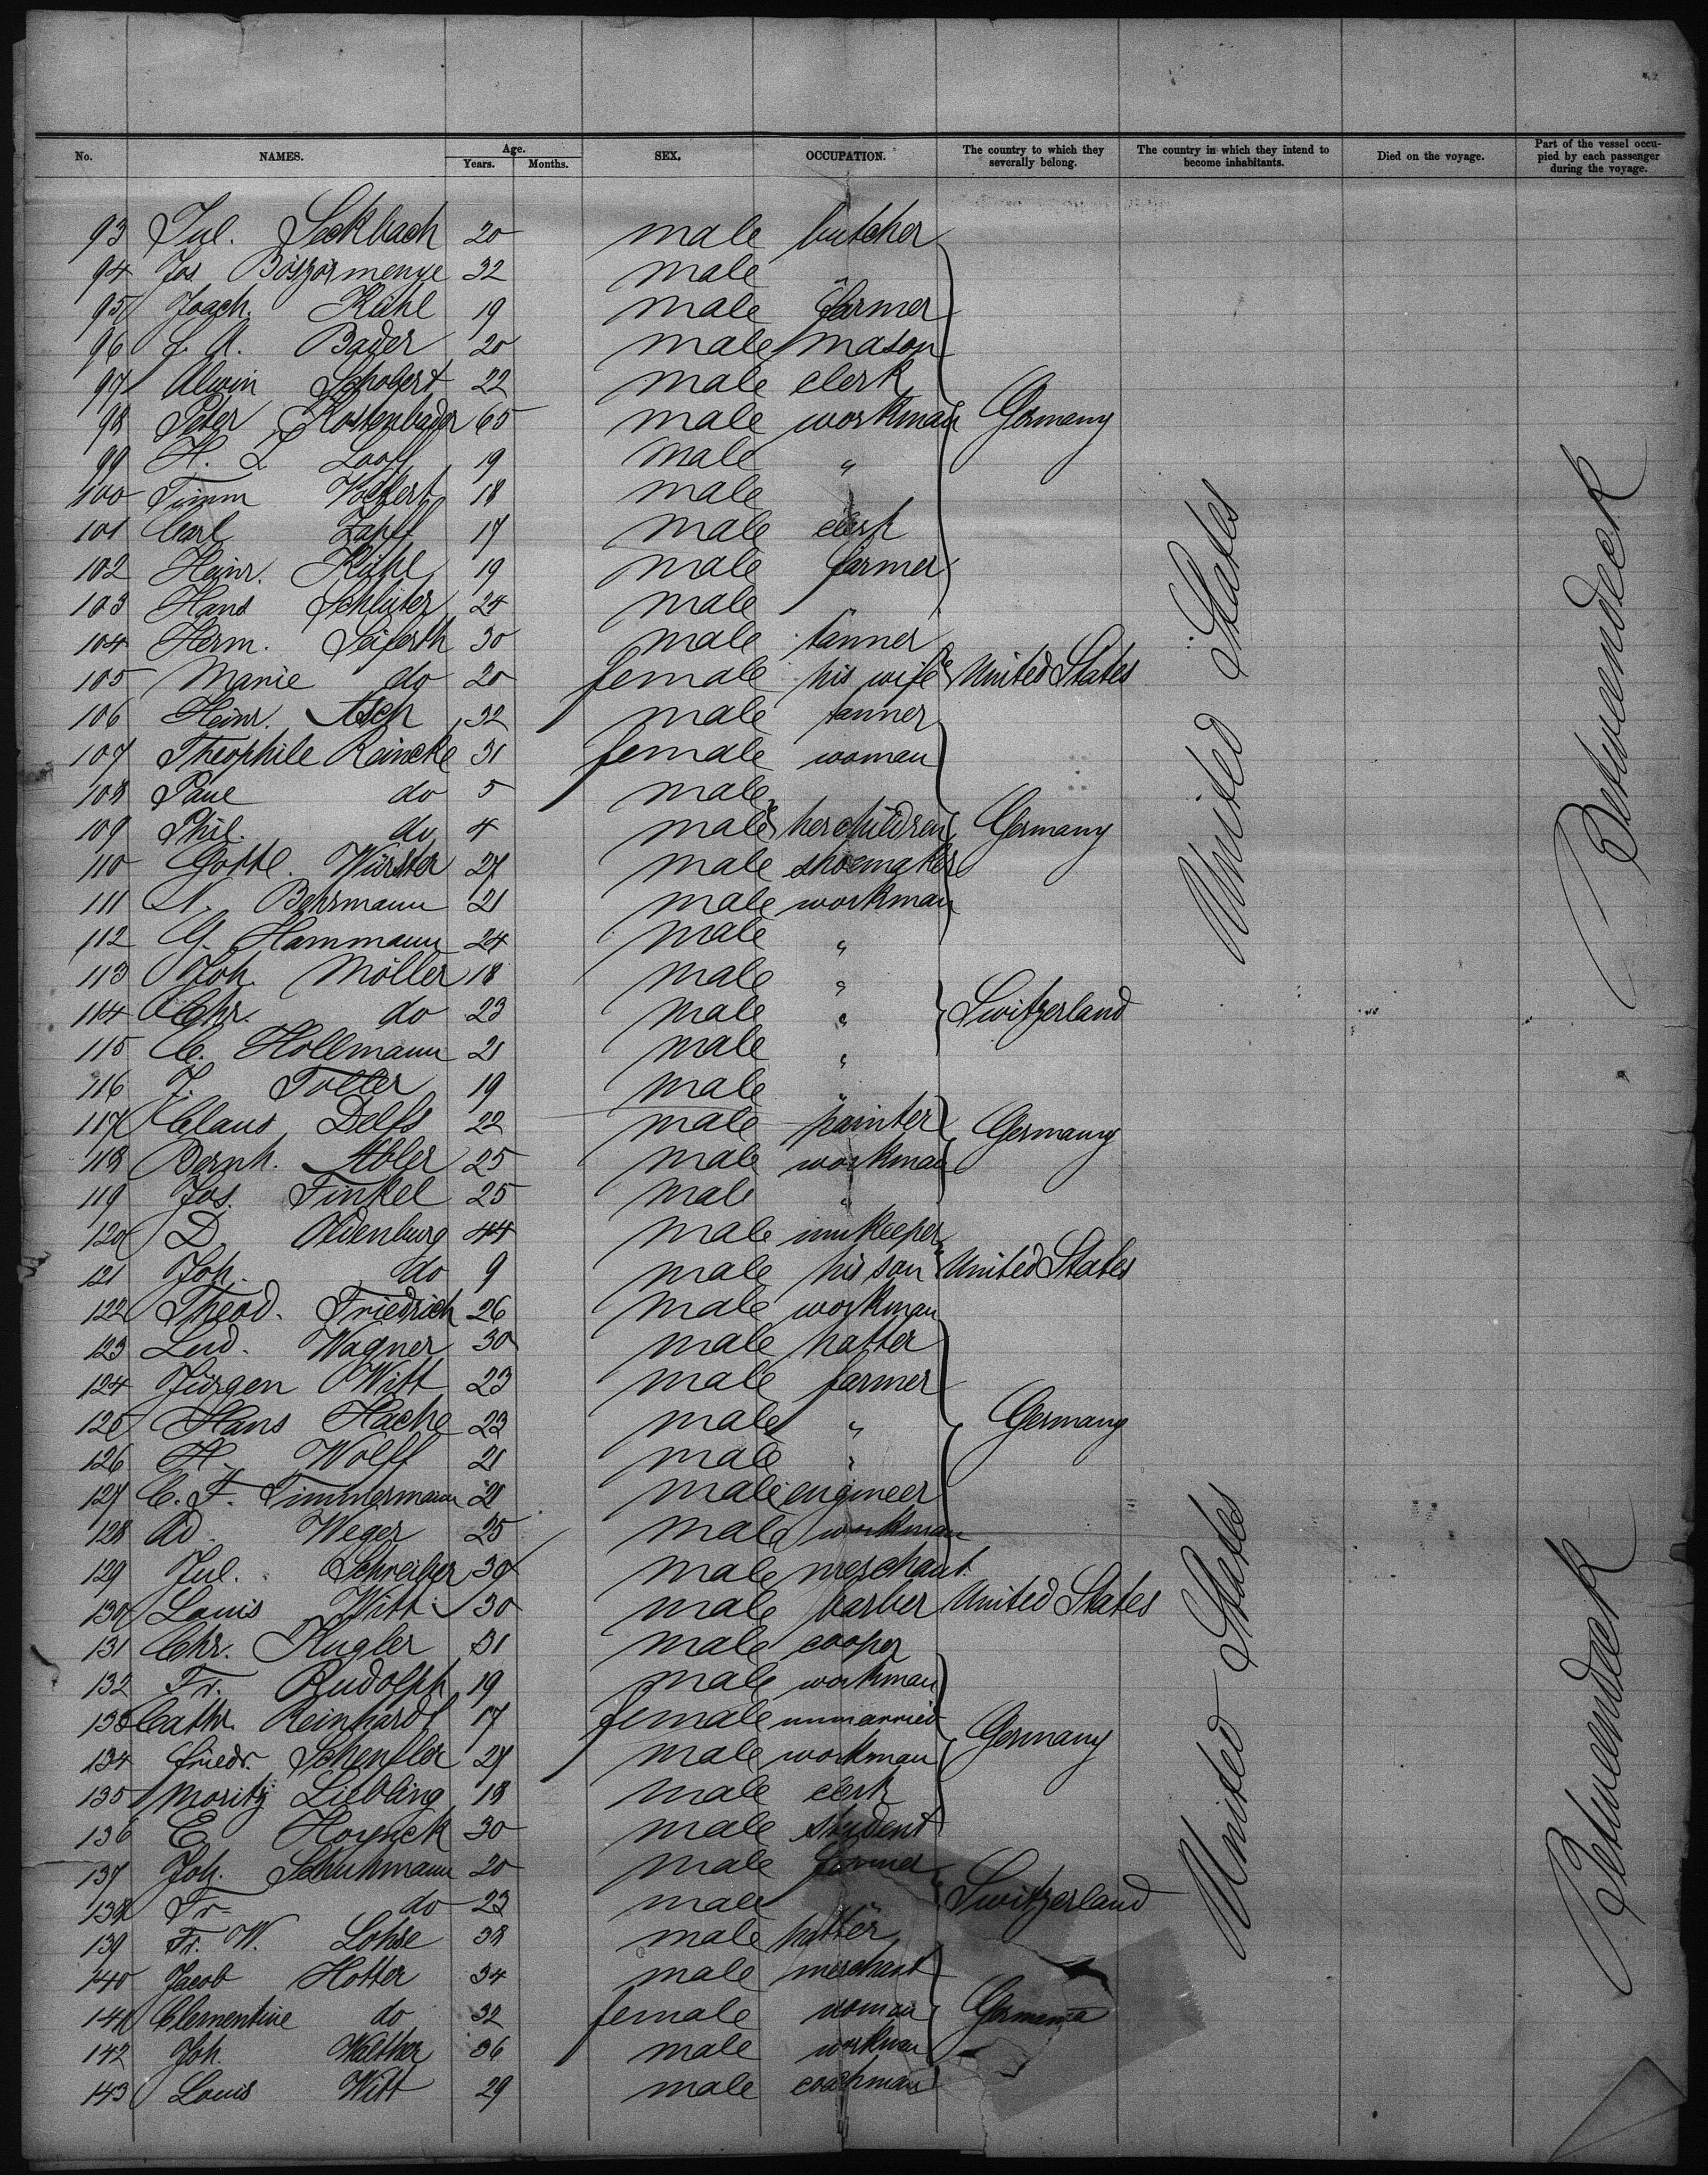 No. NAMES. Age. Years. Months. SEX. OCCUPATION. The country to which they severally belong. The country in which they intend to become inhabitants. Died on the voyage. Part of the vessel occupied by each passenger during the voyage.
93 Jul. Seckbach 20 male butcher
94 Jos. Böszörmenye 32 male "
95 Joach. Kühl 19 male farmer
96 F. A. Bader 20 male mason
97 Alwin Schobert 22 male clerk
98 Peter Kostenbader 65 male workman Germany
99 H. L. Looff 19 male "
100 Timm Volkert 18 male "
101 Carl Zapff 17 male clerk
102 Heinr. Kühl 19 male farmer
103 Hans Schlüter 24 male "
104 Herm. Seiferth 30 male tanner
105 Marie do 20 female his wife United States
106 Heinr. Asch 32 male tanner
107 Theophile Reincke 31 female woman
108 Paul do 5 male
109 Phil. do 4 male her children Germany
110 Gottl. Würster 27 male shoemaker
111 N. Behrmann 21 male workman
112 G. Hammann 24 male "
113 Joh. Möller 18 male "
114 Chr. do 23 male " Switzerland
115 C. Hollmann 21 male "
116 J. 19 male "
117 Claus Delfs 22 male painter Germany
118 Bernh. Abler 25 male workman
119 Jos. Finkel 25 male "
120 D. Oldenburg 44 male innkeeper
121 Joh. do 9 male his son United States
122 Theod. Friedrich 26 male workman
123 Lud. Wagner 30 male hatter
124 Jürgen Witt 23 male farmer
125 Hans Hache 23 male " Germany
126 H. Wolff 21 male "
127 C. F. Timmermann 21 male engineer
128 Ad. Weger 25 male workman
129 Jul. Schreiber 30 male merchant
130 Louis Witt 30 male barber United States
131 Chr. Kugler 31 male cooper
132 Fr. Rudolph 19 male workman
133 Cathr. Reinhardt 17 female unmarried Germany
134 Friedr. Schenfler 27 male workman
135 Moritz Liebling 18 male clerk
136 E. Hoynck 30 male student
137 Joh. Schuhmann 20 male farmer
138 Fr. do 23 male " Switzerland
139 Fr. W. Lohse 38 male hatter
140 Jacob Hotter 34 male merchant
141 Clementine do 32 female woman Germania
142 Joh. Walther 36 male workman
143 Louis Witt 29 male coachman
United States
United States
Betweendeck
Betweendeck